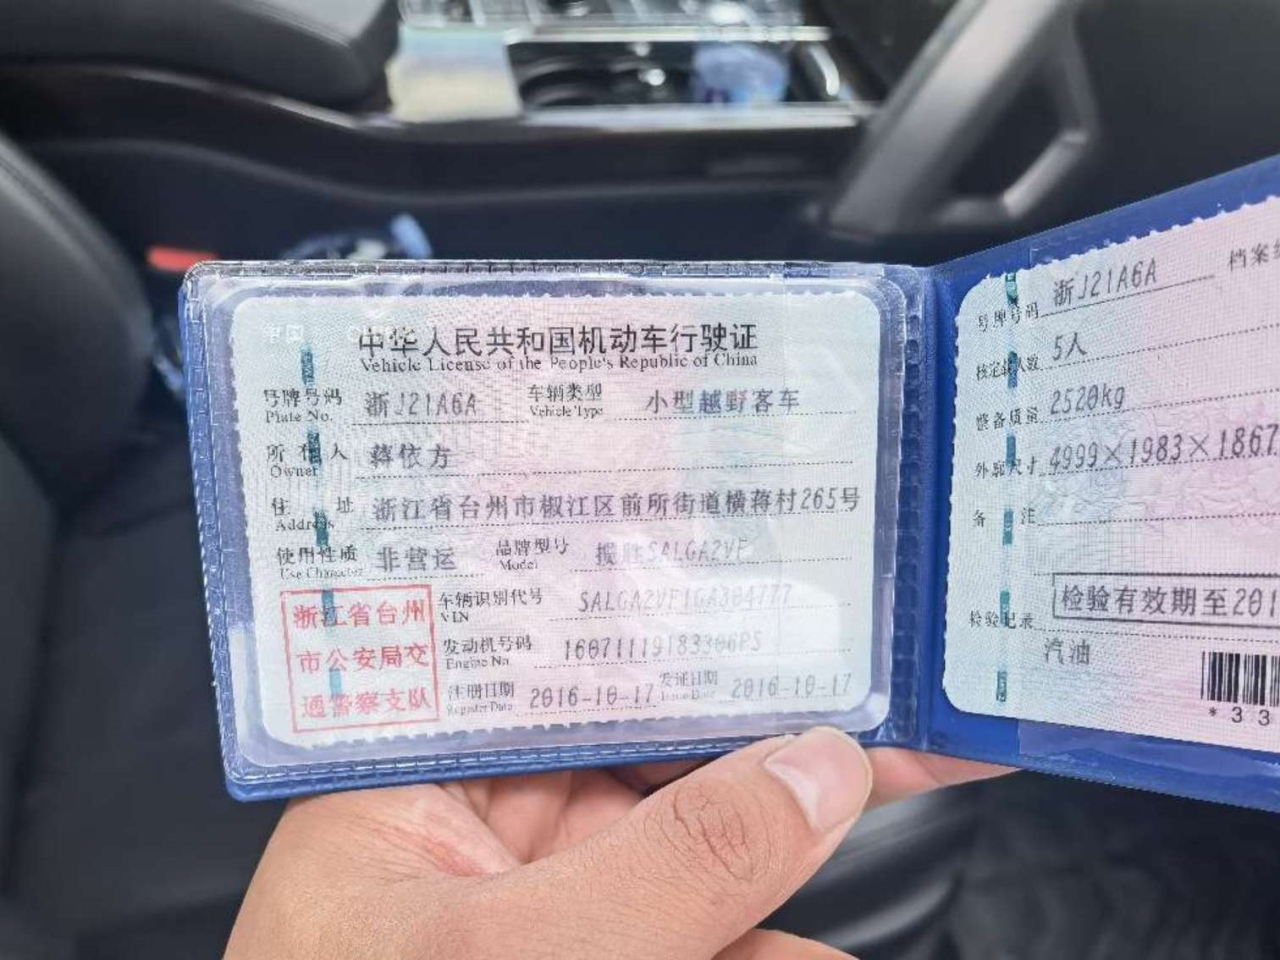 中华人民共和国机动车行驶证
Vehicle License of the People's Republic of China
号牌号码 浙J21A6A 车辆类型 小型越野客车
Plate No. Vehicle Type
所有人 蒋依方
Owner
住址 浙江省台州市椒江区前所街道横蒋村265号
Address
使用性质 非营运 品牌型号 揽胜SALGA2VF
Use Character Model
浙江省台州
市公安局交
通警察支队
车辆识别代号 SALGA2VF1GA304777
VIN
发动机号码 16071119183306PS
Engine No.
注册日期 2016-10-17 发证日期 2016-10-17
Register Date Issue Date
号牌号码 浙J21A6A 档案
核定载人数 5人
整备质量 2520kg
外廓尺寸 4999×1983×1867
备注
检验有效期至201
检验记录
汽油
*33